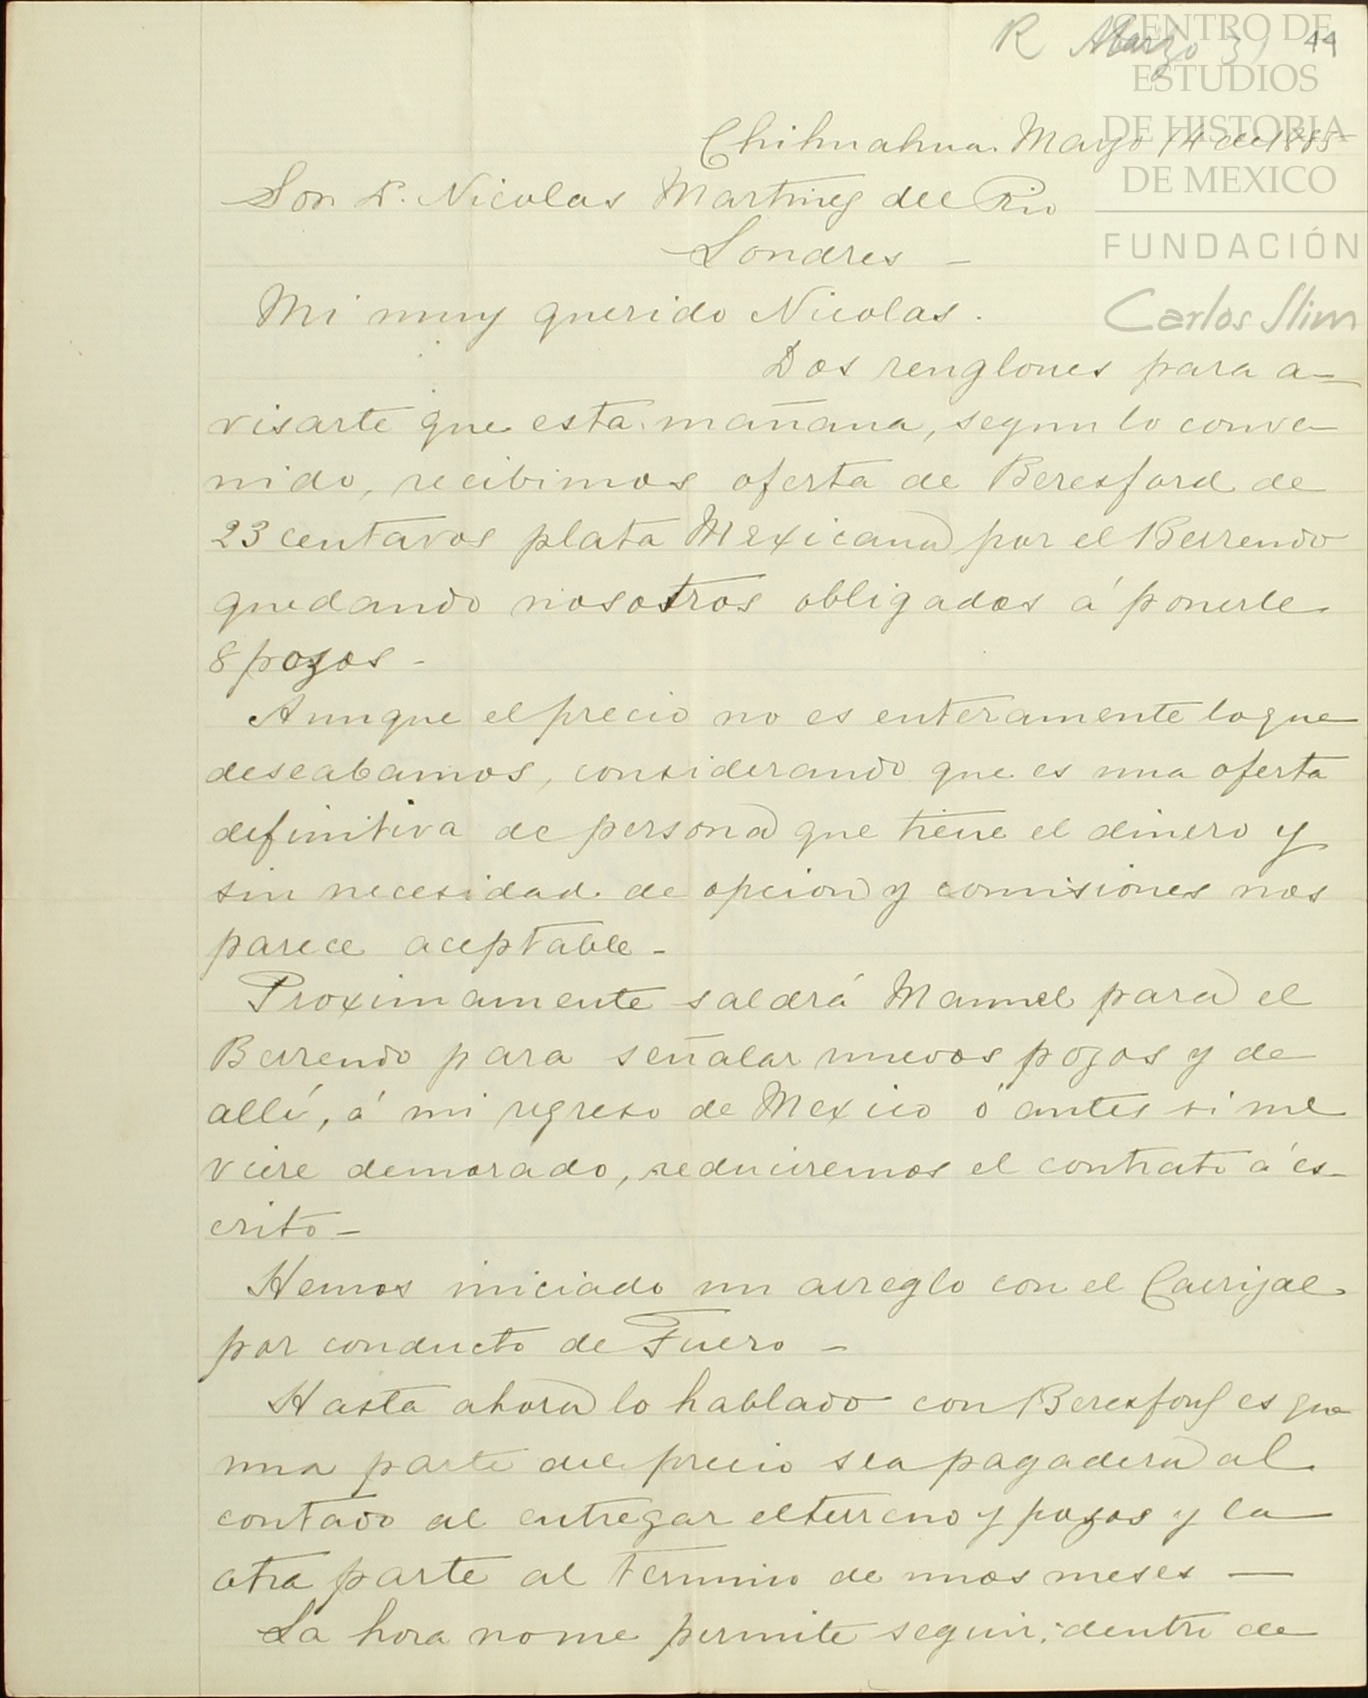 R Marzo 31 44
CENTRO DE
ESTUDIOS
DE HISTORIA
DE MEXICO
FUNDACIÓN
Carlos Slim
Chihuahua Mayo 14 de 1885
Sor. D. Nicolas Martinez del Rio
Londres –
Mi muy querido Nicolas.
Dos renglones para a-
visarte que esta mañana, segun lo conve-
nido, recibimos oferta de Beresford de
23 centavos plata Mexicana por el Berrendo
quedando nosotros obligados á ponerle
8 pozos –
Aunque el precio no es enteramente lo que
deseabamos, considerando que es una oferta
definitiva de persona que tiene el dinero y
sin necesidad de opcion y comisiones nos
parece aceptable –
Proximamente saldrá Manuel para el
Berrendo para señalar nuevos pozos y de
allí, á mi regreso de Mexico ó antes si me
viere demorado, reduciremos el contrato á es-
crito –
Hemos iniciado un arreglo con el Carrizal
por conducto de Fuero –
Hasta ahora lo hablado con Beresford es que
una parte del precio sea pagadera al
contado al entregar el terreno y pozos y la
otra parte al termino de unos meses —
La hora no me permite seguir; dentro de